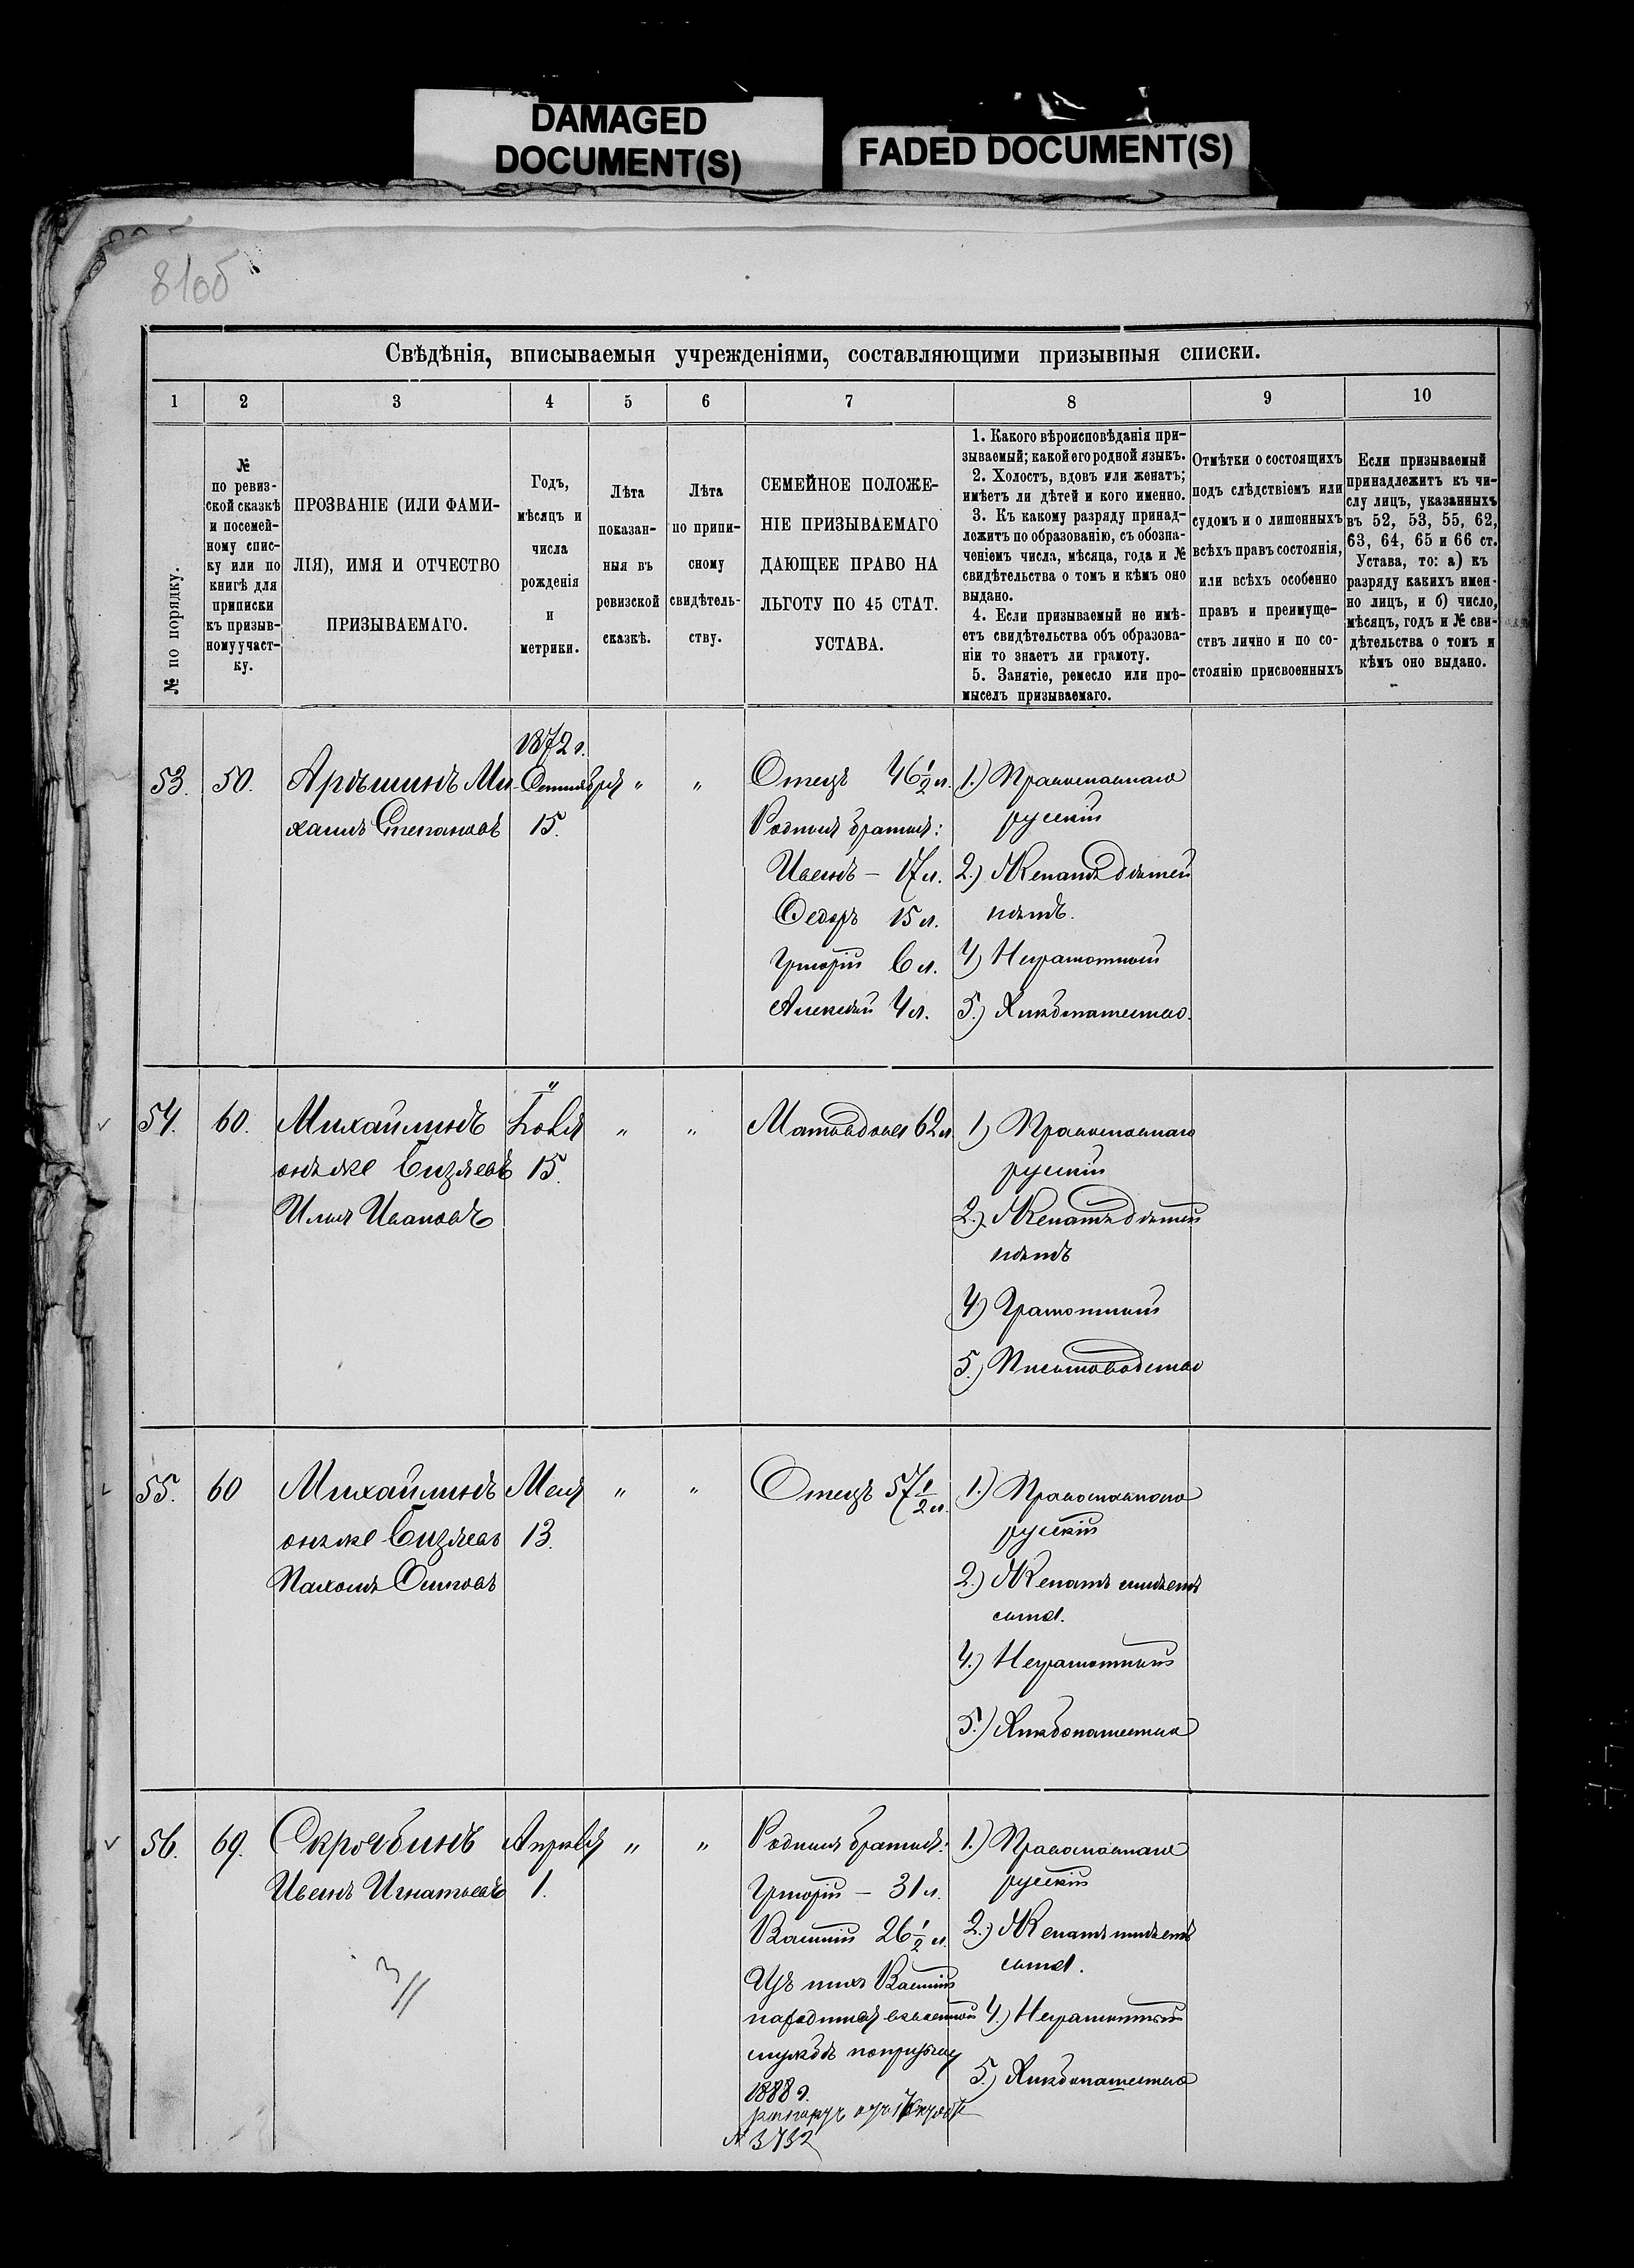 DAMAGED
DOCUMENT(S)
FADED DOCUMENT(S)
81об
Свѣдѣнія, вписываемыя учрежденіями, составляющими призывныя списки.
1 2 3 4 5 6 7 8 9 10
№ по порядку.
№
по ревиз-
ской сказкѣ
и посемей-
ному спис-
ку или по
книгѣ для
приписки
къ призыв-
ному участ-
ку.
ПРОЗВАНІЕ (ИЛИ ФАМИ-
ЛІЯ), ИМЯ И ОТЧЕСТВО
ПРИЗЫВАЕМАГО.
Годъ,
мѣсяцъ и
числа
рожденія
и
метрики.
Лѣта
показан-
ныя въ
ровизской
сказкѣ.
Лѣта
по припи-
сному
свидѣтель-
ству.
СЕМЕЙНОЕ ПОЛОЖЕ-
НІЕ ПРИЗЫВАЕМАГО
ДАЮЩЕЕ ПРАВО НА
ЛЬГОТУ ПО 45 СТАТ.
УСТАВА.
1. Какого вѣроисповѣданія при-
зываемый; какой его родной языкъ.
2. Холостъ, вдовъ или женатъ;
имѣетъ ли дѣтей и кого именно.
3. Къ какому разряду принад-
лежитъ по образованію, съ обозна-
ченіемъ числа, мѣсяца, года и №
свидѣтельства о томъ и кѣмъ оно
выдано.
4. Если призываемый не имѣ-
етъ свидѣтельства объ образова-
ніи то знаетъ ли грамоту.
5. Занятіе, ремесло или про-
мыселъ призываемаго.
Отмѣтки о состоящихъ
подъ слѣдствіемъ или
судомъ и о лишенныхъ
всѣхъ правъ состоянія,
или всѣхъ особенно
правъ и преимуще-
ствъ лично и по со-
стоянію присвоенныхъ
Если призываемый
принадлежитъ къ чи-
слу лицъ, указанныхъ
въ 52, 53, 55, 62,
63, 64, 65 и 66 ст.
Устава, то: а) къ
разряду какихъ имен-
но лицъ, и б) число,
мѣсяцъ, годъ и № сви-
дѣтельства о томъ и
кѣмъ оно выдано.
53. 50.
Ми-
хаилъ Степановъ
1872 г.
Сентября
15.
" "
Отецъ 46 1/2 л.
Родныя братья:
Иванъ – 17 л.
Федоръ 15 л.
Григорій 6 л.
Алексѣй 4 л.
1.) Православнаго
русскій
2.) Женатъ дѣтей
нѣтъ.
4) Неграмотный
5.) Хлѣбопашество.
54. 60.
Михайлинъ
онъ же Сизяевъ
Илья Ивановъ
"
Іюля
15.
" "
Мать вдова 62 л.
1) Православнаго
русскій
2.) Женатъ дѣтей
нѣтъ
4) Грамотный
5.) Письмоводство
55. 60
Михайлинъ
онъ же Сизяевъ
Пахомъ Осиповъ
Мая
13.
" "
Отецъ 57 1/2 л.
1.) Православнаго
русскій
2.) Женатъ имѣетъ
сына.
4.) Неграмотный
5.) Хлѣбопашество
56. 69.
Скрябинъ
Иванъ Игнатьевъ
Апрѣля
1.
" "
Родныя братья:
Григорій – 31 л.
Василій 26 1/2 л.
Изъ нихъ Василій
находится въ военной
службѣ по призыву
1888 г.
№ 3732
1.) Православнаго
русскій
2.) Женатъ имѣетъ
сына.
4.) Неграмотный
5.) Хлѣбопашество